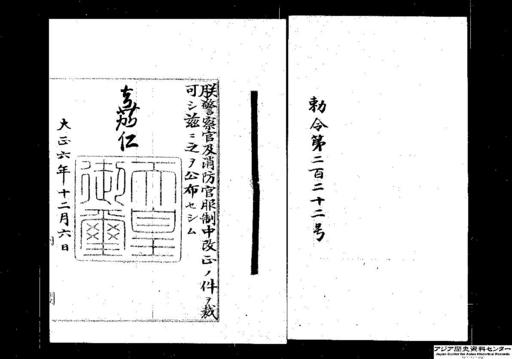 勅令第二百二十二号
朕警察官及消防官服制中改正ノ件ヲ裁
可シ茲ニ之ヲ公布セシム
嘉仁
天皇
御璽
大正六年十二月六日
アジア歴史資料センター
Japan Center for Asian Historical Records